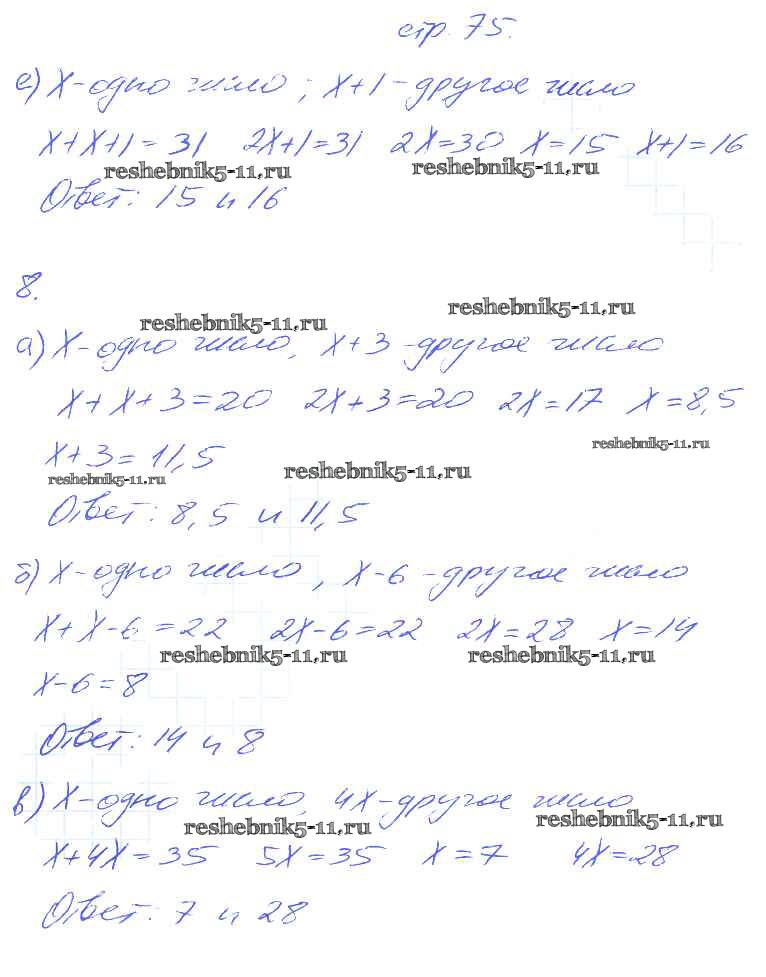 стр. 75.
е) x-одно число; x+1-другое число
x+x+1=31 2x+1=31 2x=30 x=15 x+1=16
reshebnik5-11.ru reshebnik5-11.ru
Ответ: 15 и 16
8.
reshebnik5-11.ru reshebnik5-11.ru
а) x-одно число, x+3-другое число
x+x+3=20 2x+3=20 2x=17 x=8,5
reshebnik5-11.ru
x+3=11,5
reshebnik5-11.ru reshebnik5-11.ru
Ответ: 8,5 и 11,5
б) x-одно число, x-6-другое число
x+x-6=22 2x-6=22 2x=28 x=14
reshebnik5-11.ru reshebnik5-11.ru
x-6=8
Ответ: 14 и 8
в) x-одно число, 4x-другое число
reshebnik5-11.ru reshebnik5-11.ru
x+4x=35 5x=35 x=7 4x=28
Ответ: 7 и 28